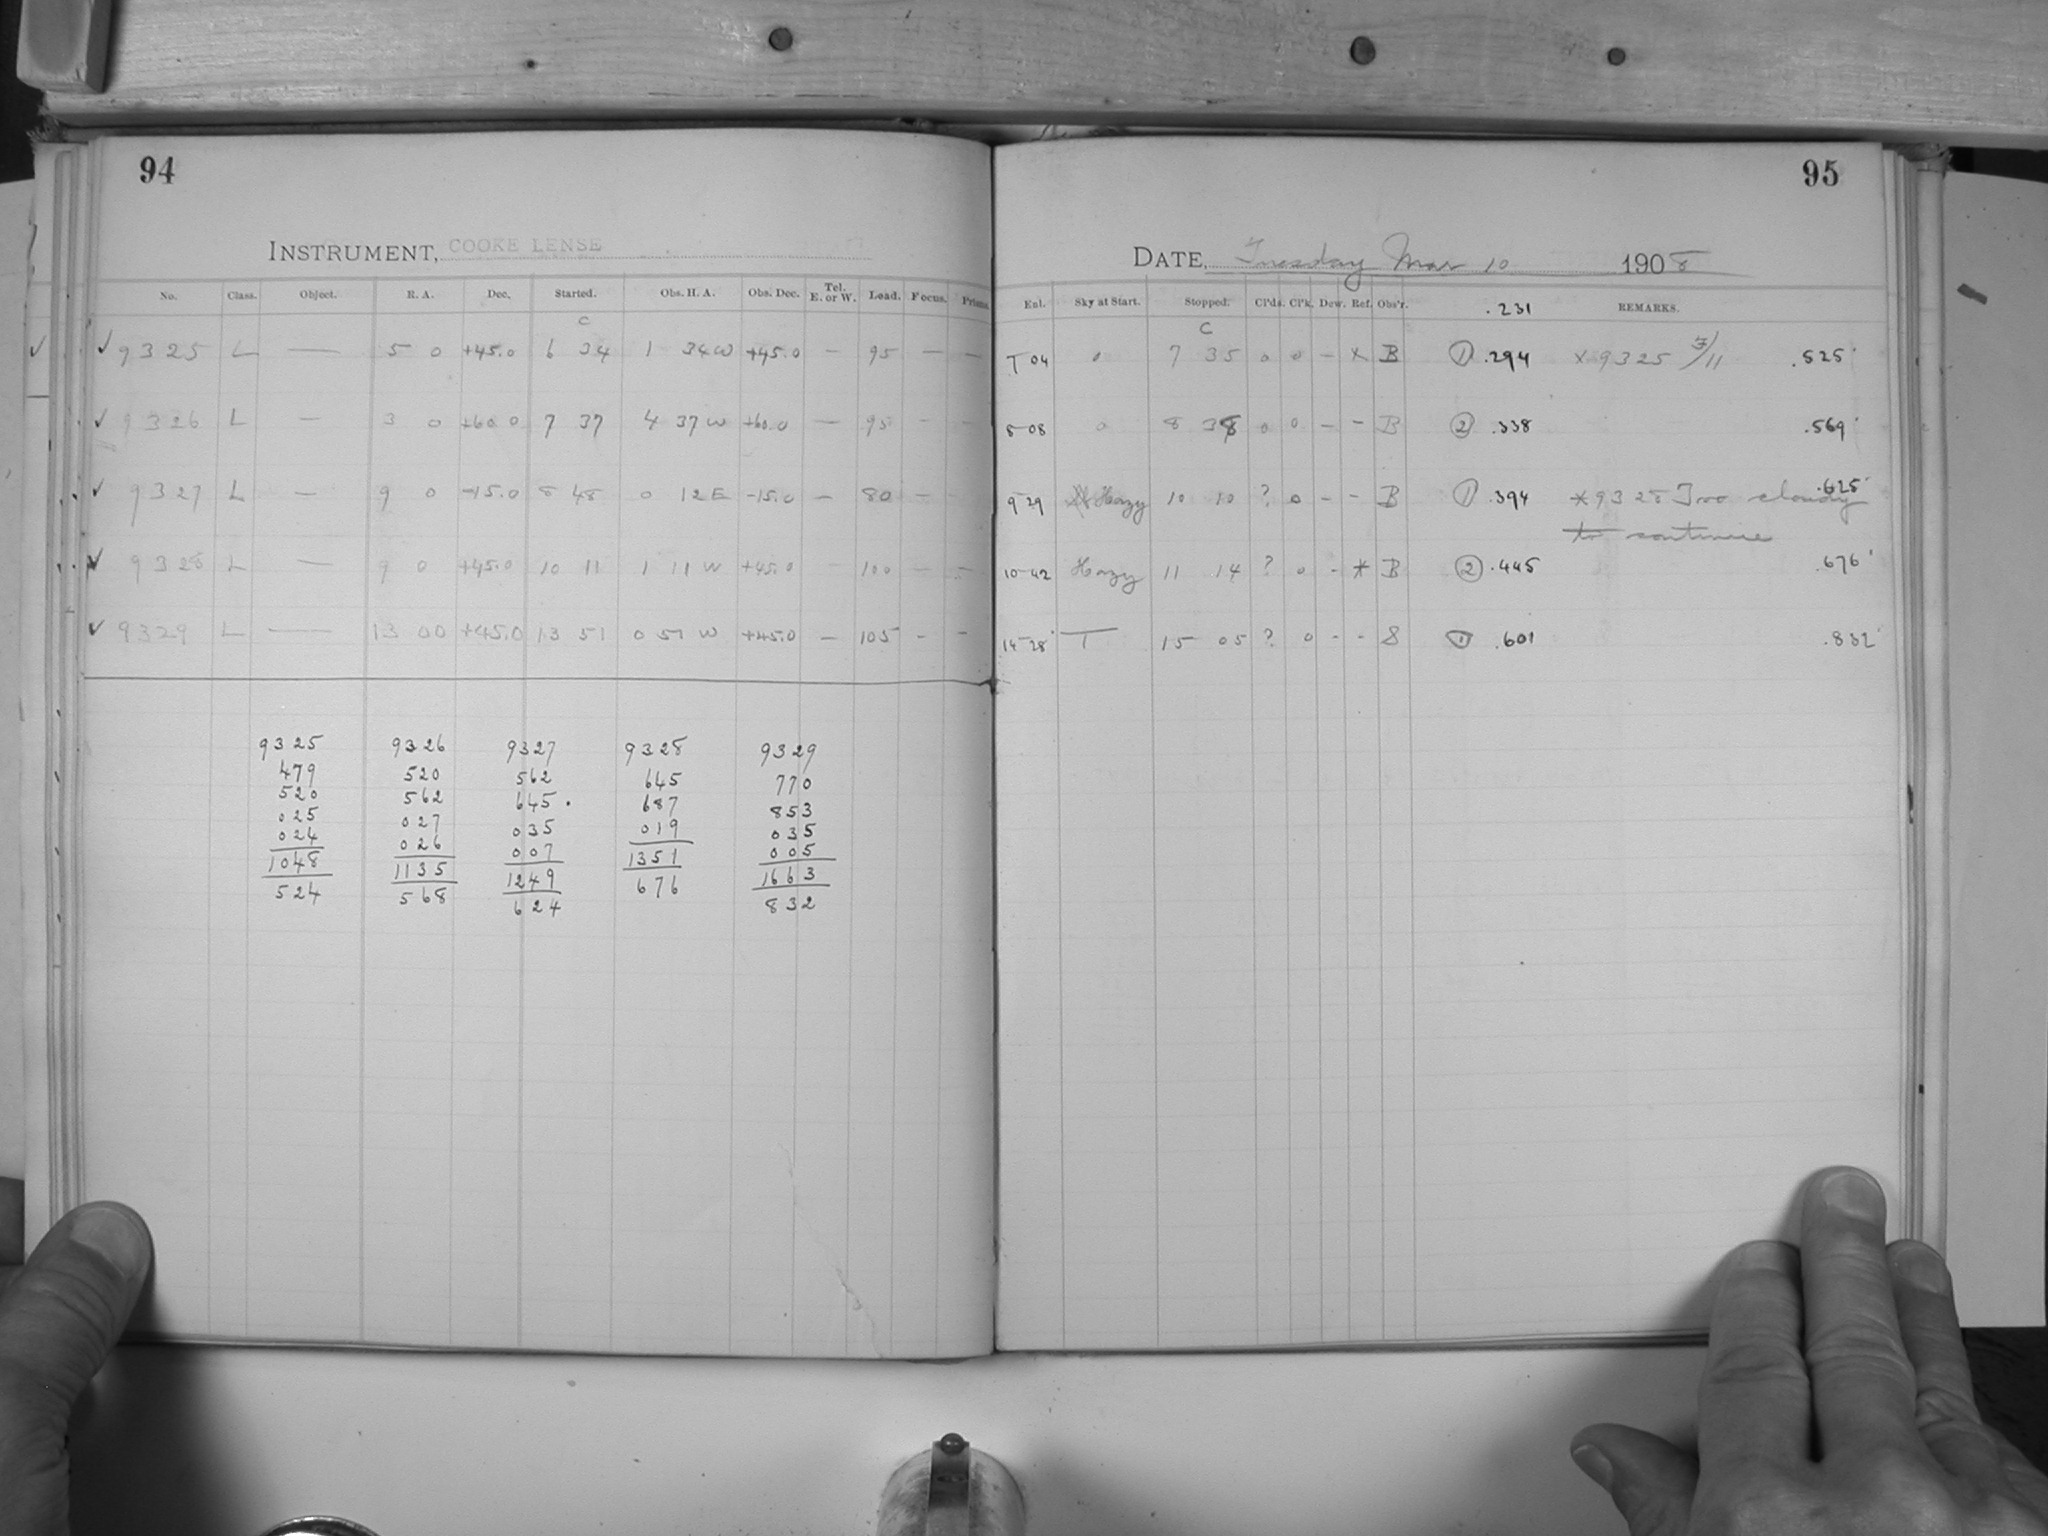 94
INSTRUMENT, COOKE LENSE
No. Class. Object. R. A. Dec. Started. Obs. H. A. Obs. Dec. Tel. E. or W. Load. Focus. Prisms.
C
✓ ✓ 9325 L — 5 0 +45.0 6 34 1 34 W +45.0 — 95 — —
✓ 9326 L — 3 0 +60.0 7 37 4 37 W +60.0 — 95 — —
✓ 9327 L — 9 0 -15.0 8 48 0 12 E -15.0 — 80 — —
✓ 9328 L — 9 0 +45.0 10 11 1 11 W +45.0 — 100 — —
✓ 9329 L — 13 00 +45.0 13 51 0 51 W +45.0 — 105 - -
9325 9326 9327 9328 9329
479 520 562 645 770
520 562 645. 687 853
025 027 035 019 035
024 026 007 1351 005
1048 1135 1249 676 1663
524 568 624 832
95
DATE, Tuesday Mar 10 1908
Enl. Sky at Start. Stopped. Cl'ds. Cl'k. Dew. Ref. Obs'r. .231 REMARKS.
C
7 04 0 7 35 0 0 - x B ① .294 x 9325 3/11 .525
8-08 0 8 38 0 0 - - B ② .338 .569
9 29 Hazy 10 10 ? 0 - - B ① .394 * 9328 Too cloudy .625
to continue
10-42 Hazy 11 14 ? 0 - * B ② .445 .676
14-28 T 15 05 ? 0 - - S ① .601 .832